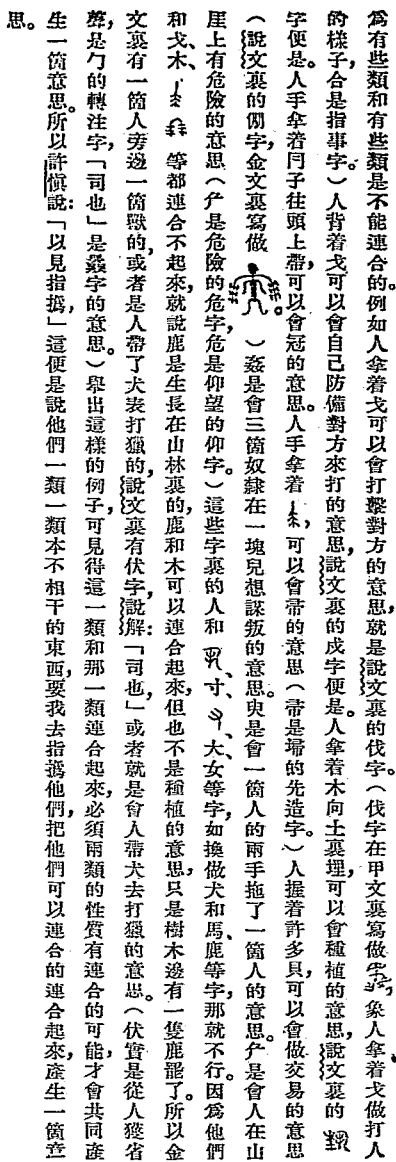 爲有些類和有些類是不能連合的。例如人拿着戈可以會打擊對方的意思，就是說文裏的伐字。（伐字在甲文裏寫做　，象人拿着戈做打人
的樣子，合是指事字。）人背着戈可以會自己防備對方來打的意思，說文裏的戍字便是。人拿着木向土裏埋，可以會種植的意思，說文裏的
字便是。人手拿着冃子往頭上帶，可以會冠的意思。人手拿着　，可以會帚的意思（帚是埽的先造字。）人握着許多貝，可以會做交易的意思
（說文裏的賏字，金文裏寫做　）姦是會三箇奴隸在一塊兒想謀叛的意思。臾是會一箇人的兩手拖了一箇人的意思。厃是會人在山
厓上有危險的意思（厃是危險的危字，危是仰望的仰字。）這些字裏的人和　、寸、　、大、女等字，如換做犬和馬、鹿等字，那就不行。因爲他們
和戈、木、　　等都連合不起來，就說鹿是生長在山林裏的，鹿和木可以連合起來，但也不是種植的意思，只是樹木邊有一隻鹿罷了。所以金
文裏有一箇人旁邊一箇獸的，或者是人帶了犬去打獵的，說文裏有伏字，說解：「司也，」或者就是會人帶犬去打獵的意思。（伏實是從人獲省
聲，是勹的轉注字，「司也」是　字的意思。）舉出這樣的例子，可見得這一類和那一類連合起來，必須兩類的性質有連合的可能，才會共同產
生一箇意思。所以許愼說：「以見指撝，」這便是說他們一類一類本不相干的東西，要我去指撝他們，把他們可以連合的連合起來，產生一箇意
思。